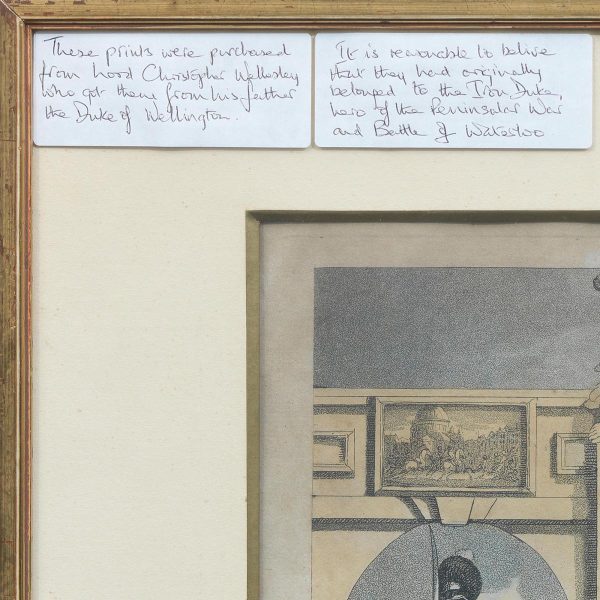 These prints were purchased
from Lord Christopher Wellesley
who got them from his father
the Duke of Wellington.
It is reasonable to believe
that they had originally
belonged to the Iron Duke,
hero of the Peninsular War
and Battle of Waterloo